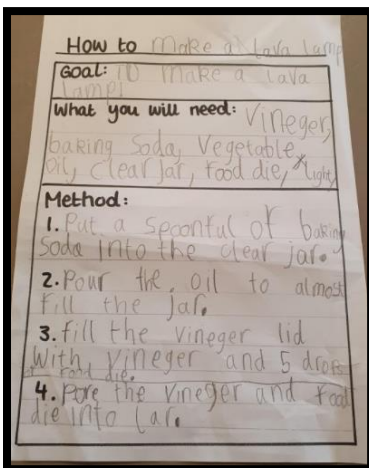 How to Make a lava lamp
Goal: To make a lava
lamp!
What you will need: Vineger,
baking Soda, Vegetable
Oil, clear jar, food die, *light
Method:
1. Put a spoonful of baking
Soda into the clear jar.
2. Pour the oil to almost
fill the jar.
3. fill the vineger lid
With vineger and 5 drops
of food die.
4. Pore the vineger and food
die into Jar.